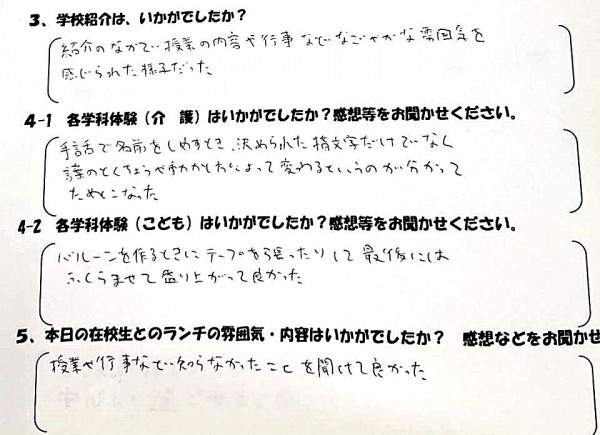 3、学校紹介は、いかがでしたか？
紹介のなかで、授業の内容や行事などなごやかな雰囲気を
感じられた様子だった
4-1 各学科体験（介 護）はいかがでしたか？感想等をお聞かせください。
手話で名前をしめすとき、決められた指文字だけでなく
誰のとくちょうや手かたちによって変わるというのが分かって
ためとこなった
4-2 各学科体験（こども）はいかがでしたか？感想等をお聞かせください。
バルーンを作るときにテープを張ったりして最後には
ふくらませて盛り上がって良かった
5、本日の在校生とのランチの雰囲気・内容はいかがでしたか？ 感想などをお聞かせ
授業や行事など、知らなかったことを聞けて良かった